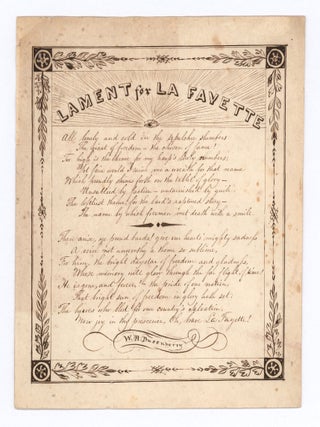 LAMENT for LA FAYETTE
All lonely and cold in the sepulchre slumbers
The giant of freedom – the chosen of fame!
Too high is the theme for my harp's lowly numbers;
Yet fain would I twine one wreath for that name
Which proudly shines forth on the tablet of glory
Unsullied by faction – untarnished by guile
The loftiest theme for the bard's
The name by which freemen meet death with a smile.
There arise, ye bards! give our hearts mighty sadness
A voice not unworthy a theme so sublime,
For him, the bright daystar of freedom and gladness,
Whose memory will glow through the far flight of time!
He is gone, and forever, the pride of our nation,
That bright sun of freedom in glory hath set:
The heroes who bled for our country's
Now joy in thy presence, Oh, brave La Fayette!
W. H.